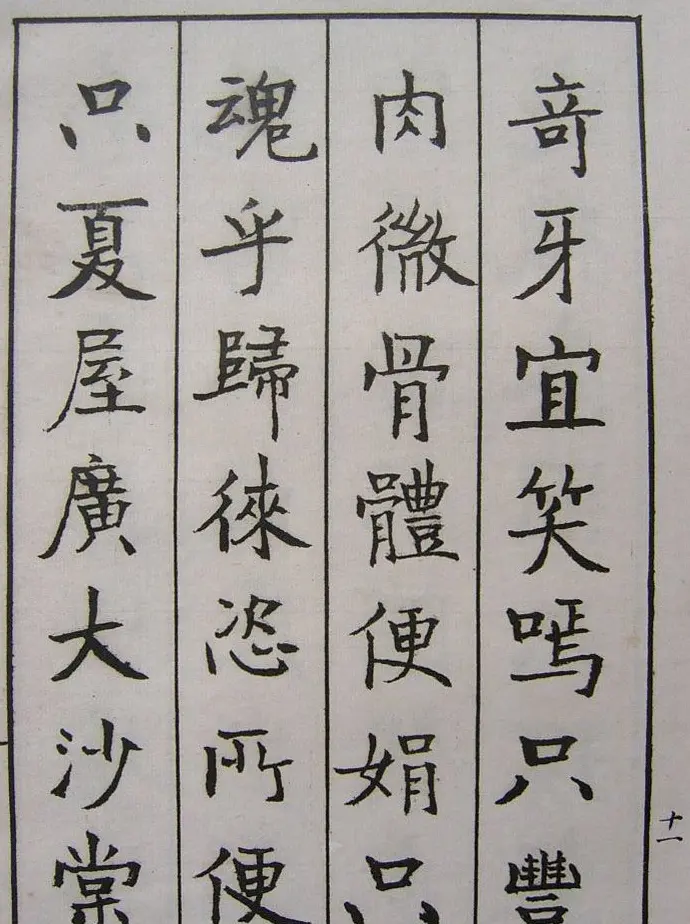 奇牙宜笑嗎只豐
肉微骨體便娟只
魂乎歸徠恣所便
只夏屋廣大沙棠
十一